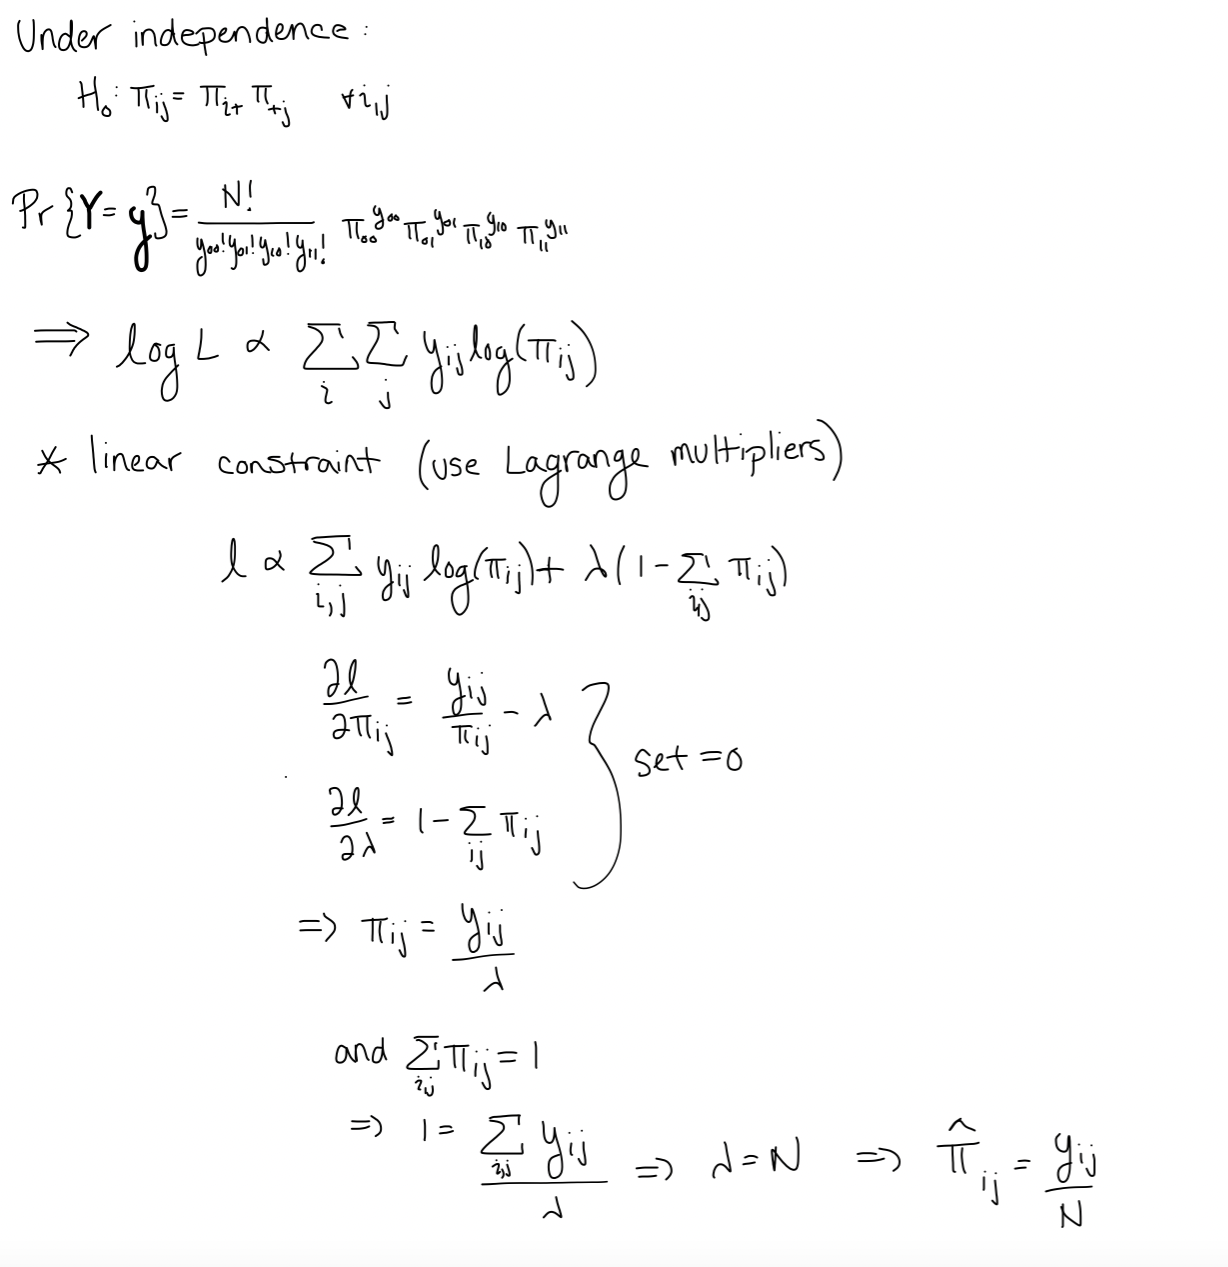 Under independence:
H₀: π_ij = π_i+ π_+j ∀i,j
Pr{Y=y} = N! / (y₀₀! y₀₁! y₁₀! y₁₁!) π₀₀^y₀₀ π₀₁^y₀₁ π₁₀^y₁₀ π₁₁^y₁₁
⟹ log L ∝ Σ_i Σ_j y_ij log(π_ij)
* linear constraint (use Lagrange multipliers)
l ∝ Σ_i,j y_ij log(π_ij) + λ(1 - Σ_ij π_ij)
∂l/∂π_ij = y_ij/π_ij - λ
∂l/∂λ = 1 - Σ_ij π_ij } set = 0
=> π_ij = y_ij/λ
and Σ_ij π_ij = 1
=> 1 = Σ_ij y_ij / λ => λ = N => π̂_ij = y_ij/N